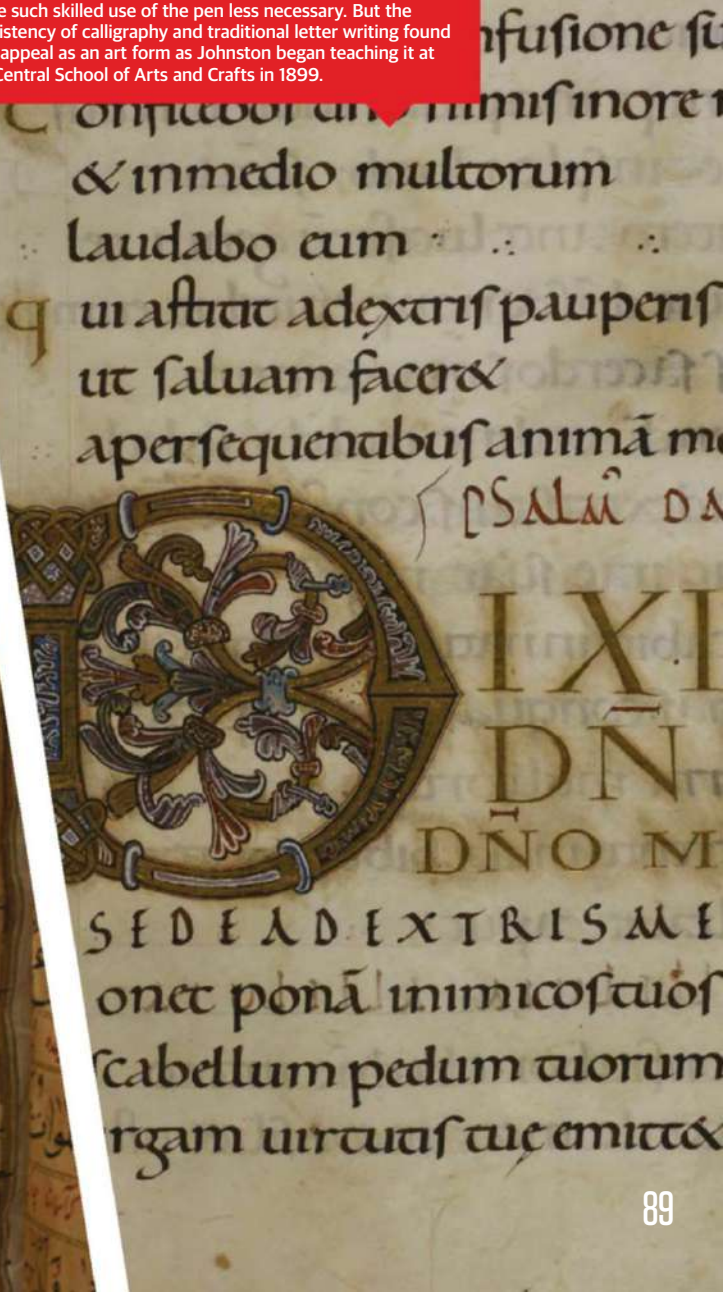 such skilled use of the pen less necessary. But the
of calligraphy and traditional letter writing found
appeal as an art form as Johnston began teaching it at
Central School of Arts and Crafts in 1899.
&inmedio multorum
laudabo eum
qui aſtitit adextriſ pauperiſ
ut ſaluam facer&
aperſequentibuſ animā
PSALM̄
DIXI
DÑ
DÑO M
SEDEADEXTRISME
onec ponā inimicoſ tuoſ
ſcabellum pedum tuorum
rgam uirtutiſ tuę emitt&
89